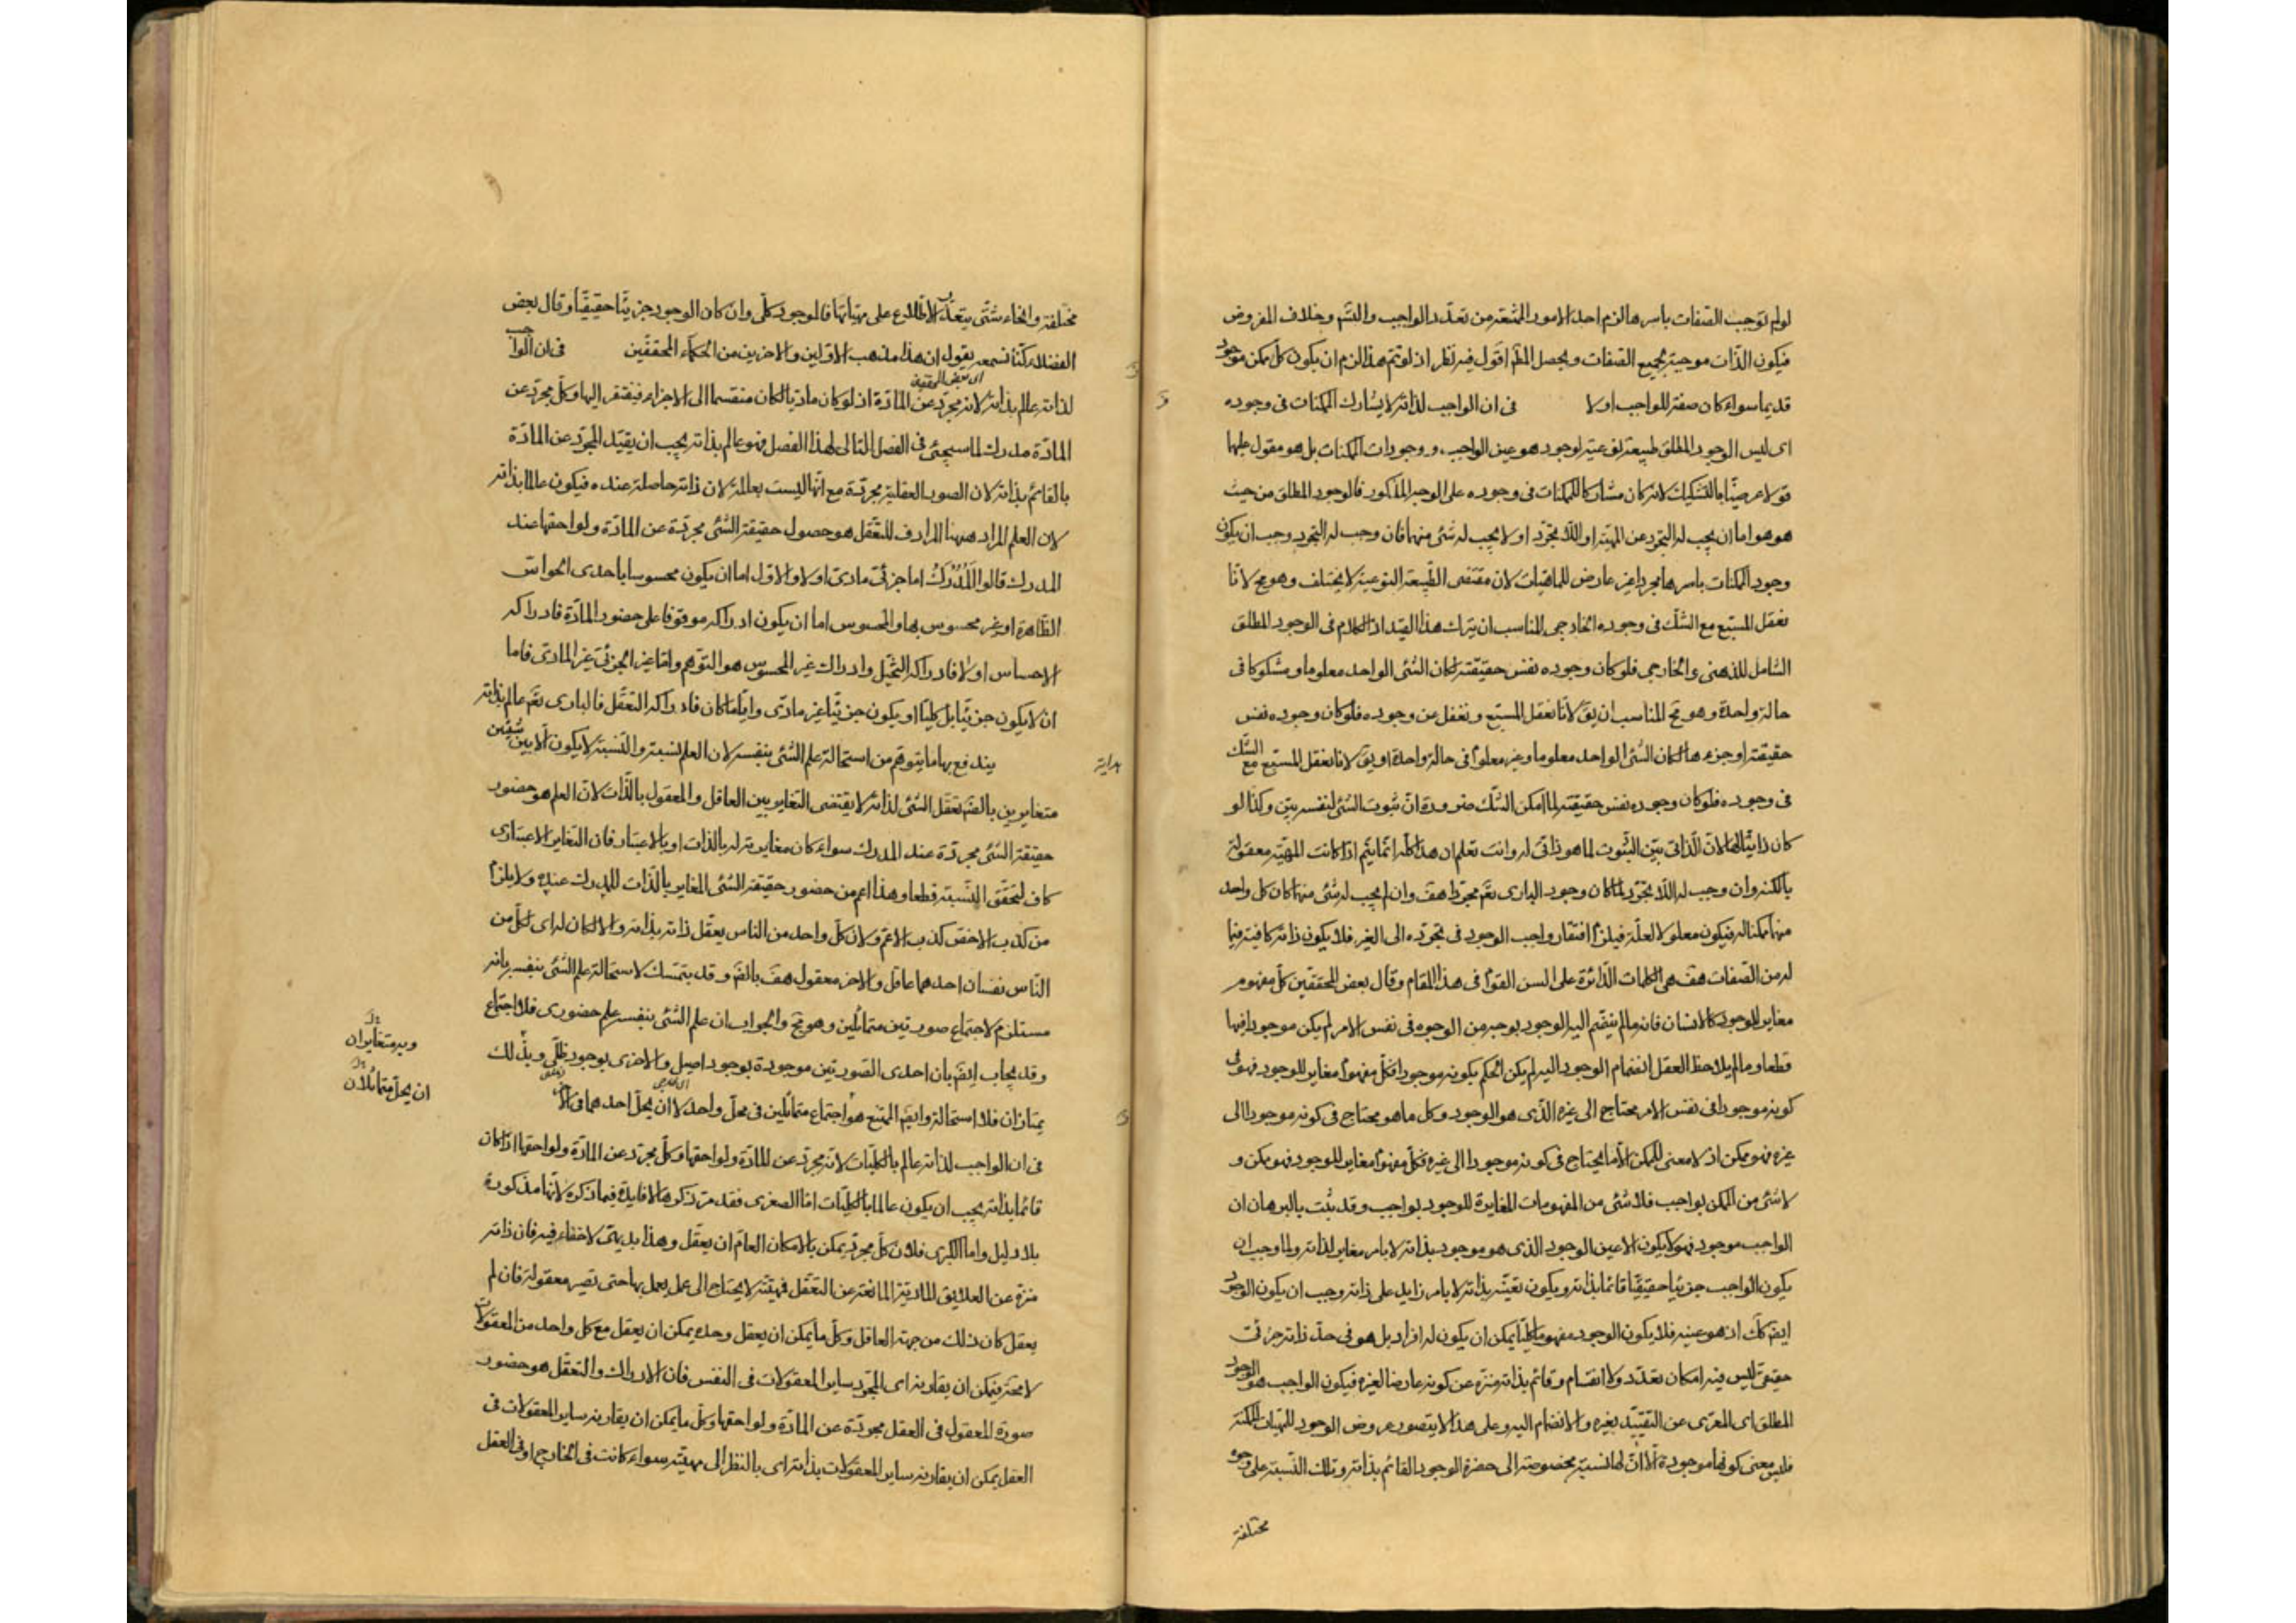 لولم توجب الصفات باسرها لزم احد الامور الممتنعة من تعدد الواجب والتسم وخلاف المفروض
فيكون الذات موجبة بجميع الصفات ويحصل المطم اقول فيه نظر اذ لو تم هذا لزم ان يكون كل ممكن موجود
قديما سواء كان صفة للواجب اولا فى ان الواجب لذاته لا يشارك الممكنات فى وجوده
اى ليس الوجود المطلق طبيعة نوعية لوجود هو عين الواجب ووجودات الممكنات بل هو مقول عليها
قولا عرضيا بالتشكيك لانه كان مشاركا للممكنات فى وجوده على الوجه المذكور فالوجود المطلق من حيث
هو هو اما ان يجب له التجرد عن المهية او اللا تجرد او لا يجب له شئ منهما فان وجب له التجرد وجب ان يكون
وجود الممكنات باسرها مجردا غير عارض للماهيات لان مقتضى الطبيعة النوعية لا يختلف وهو مح لانا
نعقل المسبع مع الشك فى وجوده الخارجى المناسب ان يترك هذا القيد اذ الكلام فى الوجود المطلق
الشامل للذهنى والخارجى فلو كان وجوده نفس حقيقته لكان الشئ الواحد معلوما ومشكوكا فى
حالة واحدة وهو مح المناسب ان يق لانا نعقل المسبع ونغفل عن وجوده فلو كان وجوده نفس
حقيقته او جزءها لكان الشئ الواحد معلوما وغير معلوم فى حالة واحدة او يق لانا نعقل المسبع مع الشك
فى وجوده فلو كان وجوده نفس حقيقته لما امكن الشك ضرورة ان ثبوت الشئ لنفسه بين وكذا لو
كان ذاتيا لها لان الذاتى بين الثبوت لما هو ذاتى له وانت تعلم ان هذا كله انما يتم اذا كانت المهية معقولة
بالكنه وان وجب له اللا تجرد لما كان وجود البارى تعم مجردا هف وان لم يجب له شئ منهما كان كل واحد
منهما ممكنا له فيكون معلولا لعلة فيلزم افتقار واجب الوجود فى تجرده الى الغير فلا يكون ذاته كافية فيما
له من الصفات هف هى الكلمات الدائرة على السن القوم فى هذا المقام وقال بعض المحققين كل مفهوم
مغاير للوجود كالانسان فانه ما لم ينضم اليه الوجود بوجه من الوجوه فى نفس الامر لم يكن موجودا فيها
قطعا وما لم يلاحظ العقل انضمام الوجود اليه لم يكن الحكم بكونه موجودا فكل مفهوم مغاير للوجود فهو فى
كونه موجودا فى نفس الامر محتاج الى غيره الذى هو الوجود وكل ما هو محتاج فى كونه موجودا الى
غيره فهو ممكن اذ لا معنى للممكن الا ما يحتاج فى كونه موجودا الى غيره فكل مفهوم مغاير للوجود فهو ممكن و
لا شئ من الممكن بواجب فلا شئ من المفهومات المغايرة للوجود بواجب وقد ثبت بالبرهان ان
الواجب موجود فهو لا يكون الا عين الوجود الذى هو موجود بذاته لا بامر مغاير لذاته ولما وجب ان
يكون الواجب جزئيا حقيقيا قائما بذاته ويكون تعينه بذاته لا بامر زايد على ذاته وجب ان يكون الوجود
ايضم كك اذ هو عينه فلا يكون الوجود مفهوما كليا يمكن ان يكون له افراد بل هو فى حد ذاته جزئى
حقيقى ليس فيه امكان تعدد ولا انقسام وقائم بذاته منزه عن كونه عارضا لغيره فيكون الواجب هو الوجود
المطلق اى المعرى عن التقييد بغيره والانضمام اليه وعلى هذا لا يتصور عروض الوجود للمهيات الممكنة
فليس معنى كونها موجودة الا ان لها نسبة مخصوصة الى حضرة الوجود القائم بذاته وتلك النسبة على وجوه
مختلفة
مختلفة وانحاء شتى يتعذر الاطلاع على مهياتها فالموجود كلى وان كان الوجود جزئيا حقيقيا وقال بعض
الفضلاء كنا نسمعه يقول ان هذا مذهب الاولين والاخرين من الحكماء المحققين فى ان الواجب
اى بعض المحققين
لذاته عالم بذاته لانه مجرد عن المادة اذ لو كان ماديا لكان منقسما الى الاجزاء فيفتقر اليها وكل مجرد عن
المادة مدرك لما سيجئ فى الفصل التالى لهذا الفصل فهو عالم بذاته يجب ان يقيد المجرد عن المادة
بالقائم بذاته لان الصور العقلية مجردة مع انها ليست بعالمة لان ذاته حاصلة عنده فيكون عالما بذاته
لان العلم المراد ههنا المرادف للتعقل هو حصول حقيقة الشئ مجردة عن المادة ولواحقها عند
المدرك قالوا المُدْرَكُ اما جزئى مادى اولا والاول اما ان يكون محسوسا باحدى الحواس
الظاهرة او غير محسوس بها والمحسوس اما ان يكون ادراكه موقوفا على حضور المادة فادراكه
الاحساس اولا فادراكه التخيل وادراك غير المحسوس هو التوهم واما غير الجزئى غير المادى فاما
ان لا يكون جزئيا بل كليا او يكون جزئيا غير مادى واياما كان فادراكه التعقل فالبارى تعم عالم بذاته
هداية
يندفع بها ما يتوهم من استحالة علم الشئ بنفسه لان العلم نسبة والنسبة لا يكون الا بين شيئين
متغايرين بالضم تعقل الشئ لذاته لا يقتضى التغاير بين العاقل والمعقول بالذات لان العلم هو حضور
حقيقة الشئ مجردة عند المدرك سواء كان مغايرته له بالذات او بالاعتبار فان التغاير الاعتبارى
كاف لتحقق النسبة قطعا وهذا اعم من حضور حقيقة الشئ المغاير بالذات للمدرك عنده ولا يلزم
من كذب الاخص كذب الاعم ولان كل واحد من الناس يعقل ذاته بذاته والا لكان له اى لكل من
الناس نفسان احدهما عاقل والاخر معقول هف بالضم وقد يتمسك لاستحالة علم الشئ بنفسه بانه
مستلزم لاجتماع صورتين متماثلين وهو مح والجواب ان علم الشئ بنفسه علم حضورى فلا اجتماع
وقد يجاب ايضم بان احدى الصورتين موجودة بوجود اصيل والاخرى بوجود ظلى وبذلك
يمتازان فلا استحالة وايضم الممتنع هو اجتماع متماثلين فى محل واحد لا ان يحل احدهما فى الاخر
فى ان الواجب لذاته عالم بالكليات لانه مجرد عن المادة ولواحقها وكل مجرد عن المادة ولواحقها اذا كان
قائما بذاته يجب ان يكون عالما بالكليات اما الصغرى فقد مر ذكرها لا فايدة فيما ذكره لانها مذكورة
بلا دليل واما الكبرى فلان كل مجرد يمكن بالامكان العام ان يعقل وهذا بديهى لا خفاء فيه فان ذاته
منزه عن العلايق المادية المانعة عن التعقل فهيئته لا يحتاج الى عمل يعمل بها حتى تصير معقولة فان لم
يعقل كان ذلك من جهة العاقل وكل ما يمكن ان يعقل وحده يمكن ان يعقل مع كل واحد من المعقولات
لا محة فيمكن ان يقارنه اى المجرد ساير المعقولات فى النفس فان الادراك والتعقل هو حضور
صورة المعقول فى العقل مجردة عن المادة ولواحقها وكل ما يمكن ان يقارنه ساير المعقولات فى
العقل يمكن ان يقارنه ساير المعقولات بذاته اى بالنظر الى مهيته سواء كانت فى الخارج او فى العقل
وبر متغايران
ان يحل متماثلان